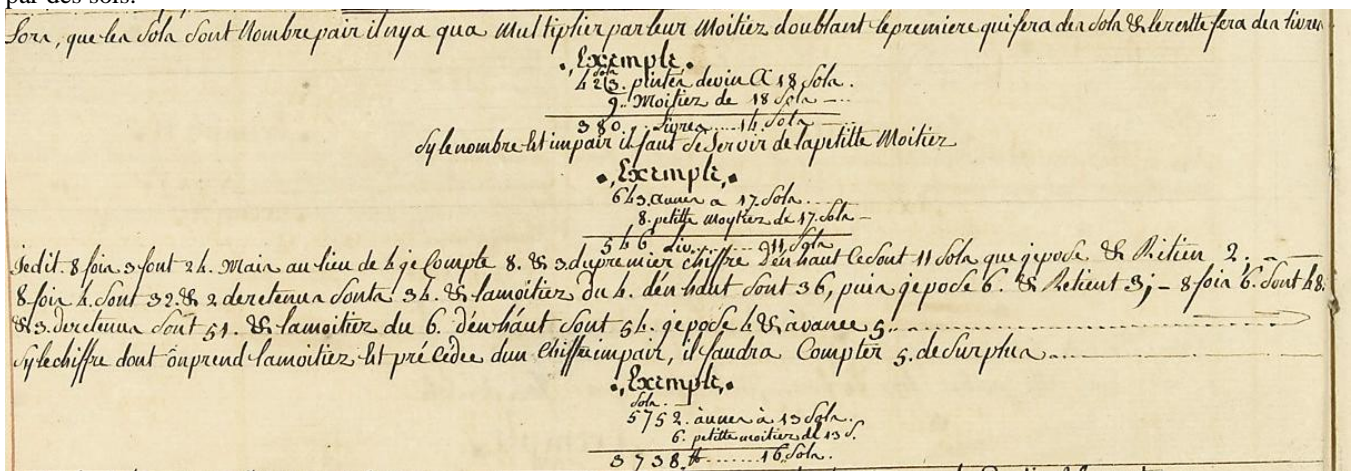 par des sols.
Lors, que les Sols Sont Nombre pair il nya qua Multiplier par leur Moitiez doublant le premiere qui fera des Sols & le reste fera des livres
Exemple
Sols
423. pintes de vin A 18 Sols.
9.. Moitiez de 18 Sols
380... Livres.....14. Sols
Sy le nombre Est impair il faut Se Servir de la petitte Moitiez
Exemple
643. aunes a 17. Sols....
8. petitte moytiez de 17. Sols
546. Liv.........11 Sols
Je dit. 8 fois 3 font 24. Mais au lieu de 4 je Compte 8. & 3 du premier chiffre d'én haut Ce Sont 11 Sols que je pose & Retien 2.
8 fois 4. Sont 32. & 2 de retenus Sonts 34. & la moitiez du 4. d'én haut Sont 36, puis je pose 6. & Retient 3; - 8 fois 6. Sont 48.
& 3. de retenus Sont 51. & la moitiez du 6. d'én haut Sont 54. je pose 4 & àvance 5.
Sy le chiffre dont ón prend la moitiez Est pré Cédée dun Chiffre impair, il faudra Compter 5. de Surplus
Exemple
Sols
5752. àunes à 13 Sols.
6. petitte moitiez de 13 S.
3738.. ₶.......16. Sols.